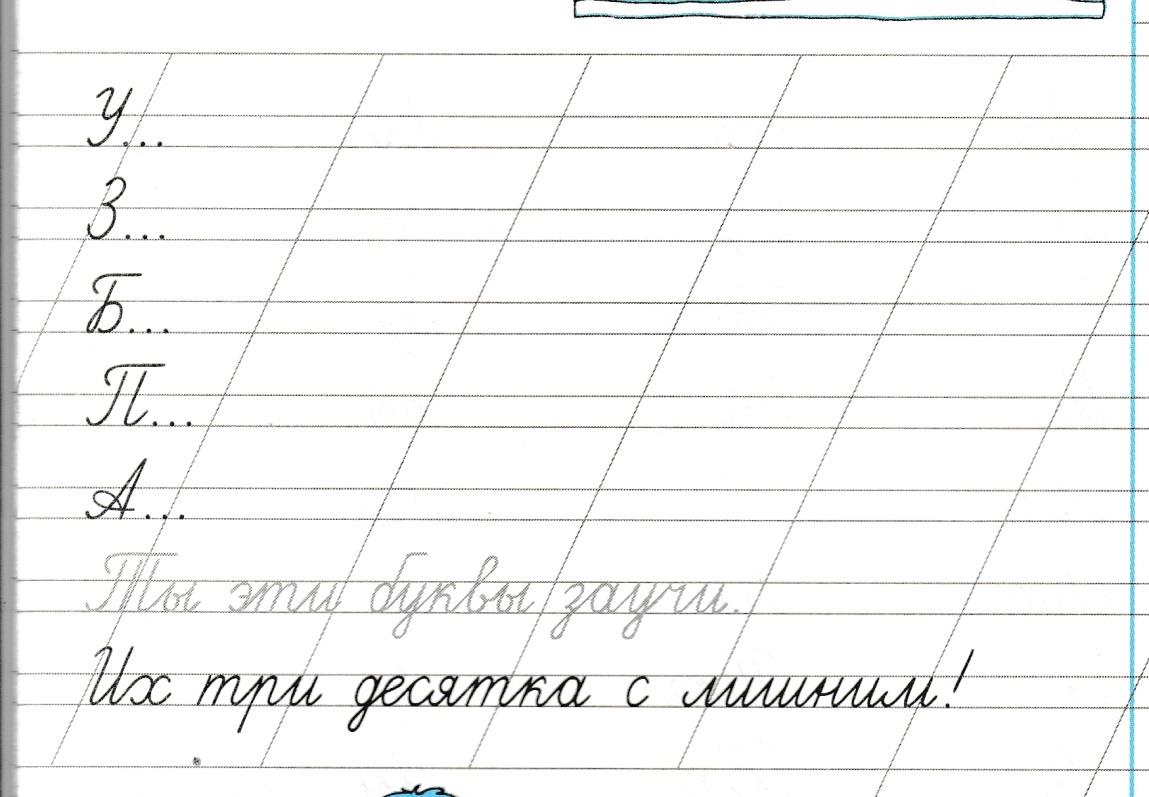 У...
З...
Б...
П...
А...
Ты эти буквы заучи.
Их три десятка с лишним!